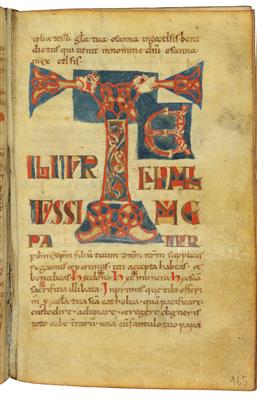 celi & terra gl̄a tua osanna inexcelsis bene
dictus qui uenit innomine dn̄i osanna
inex celsis.
TE
IGITUR CLEM
TISSI ME
PA TER
p ihm xp̄m filiū tuum dn̄m nr̄m supplices
rogamus & petimus. uti accepta habeas. &
benedicas hec dona. hec munera. hec sc̄a
sacrificia illibata. Inprimis que tibi offeri
m' p eccl̄a tua sc̄a catholica. quā pacificare.
custodire. adunare. & regere digneris
toto orbe terrarū. una cū famulo tuo papa
165